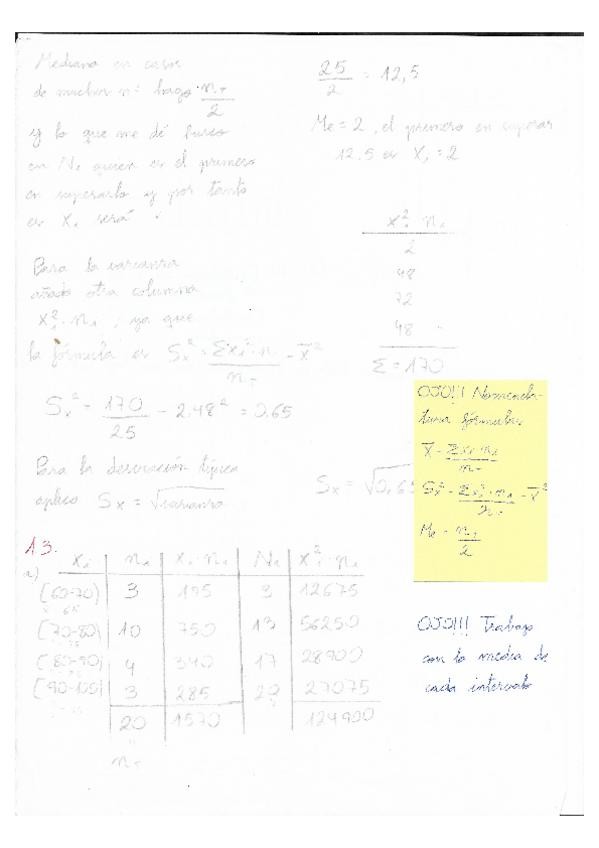 Mediana en casos
de muchos nº hago n_T/2
y lo que me dé busco
en N_i quien es el primero
en superarlo y por tanto
su X_i será
25/2 = 12,5
Me = 2, el primero en superar
12.5 es X_i = 2
X_i² · n_i
2
48
72
48
Σ = 170
Para la varianza
añado otra columna
X_i² · n_i, ya que
la fórmula es S_x² = Σx_i² · n_i / n_T - x̄²
S_x² = 170/25 - 2.48² = 0.65
Para la desviación típica
aplico S_x = √varianza
S_x = √0,65
OJO!!! Nomencla-
tura fórmulas
x̄ = Σx_i · n_i / n_T
S_x² = Σx_i² · n_i / n_T - x̄²
Me = n_T/2
13.
a)
X_i | n_i | X_i · n_i | N_i | X_i² · n_i
[60-70) | 3 | 195 | 3 | 12675
65
[70-80) | 10 | 750 | 13 | 56250
75
[80-90) | 4 | 340 | 17 | 28900
[90-100) | 3 | 285 | 20 | 27075
20 | 1570 | 124900
n_T
OJO!!! Trabajo
con la media de
cada intervalo